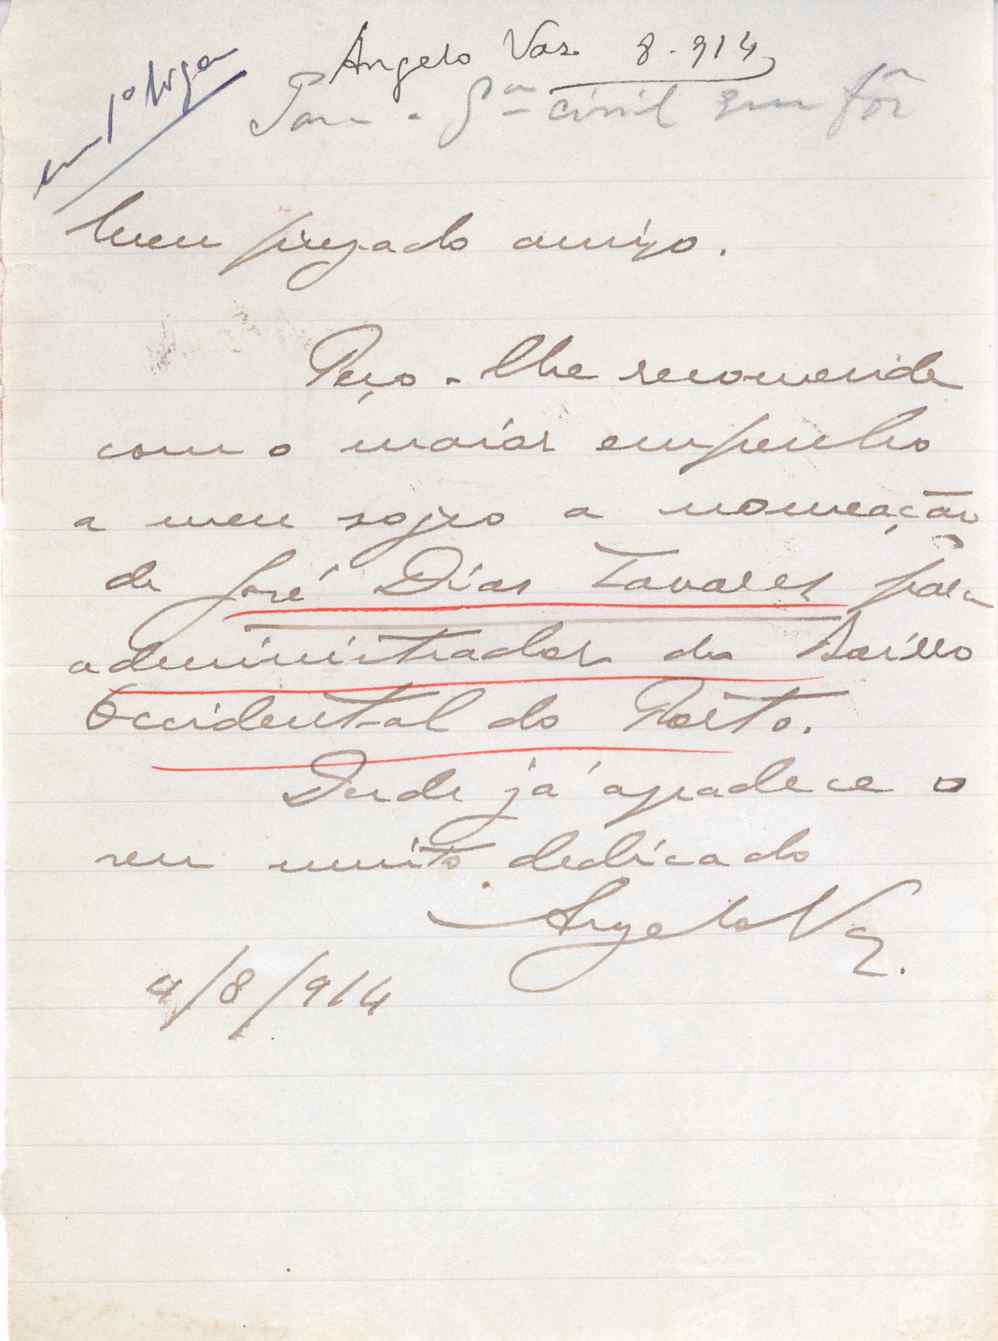 Angelo Vaz 8-914
em 1º lugar
Para o civil em
Meu prezado amigo.
Peço-lhe recomende
com o maior empenho
a meu sogro a nomeação
de José Dias Tavares para
administrador do Bairro
Occidental do Porto.
Desde já agradece o
seu muito dedicado
Angelo Vaz.
4/8/914